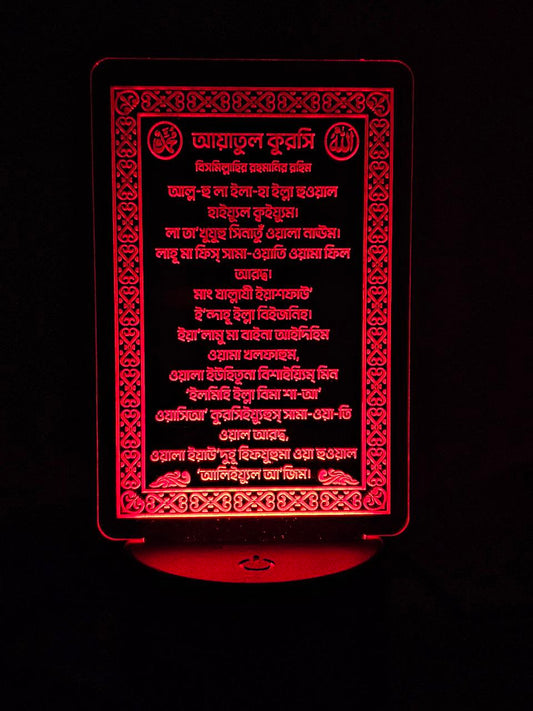 আয়াতুল কুরসি
বিসমিল্লাহির রহমানির রহিম
আল্ল-হু লা ইলা-হা ইল্লা হুওয়াল
হাইয়্যুল ক্বইয়্যুম।
লা তা'খুযুহু সিনাতুঁ ওয়ালা নাঊম।
লাহূ মা ফিস্ সামা-ওয়াতি ওয়ামা ফিল
আরদ্ব।
মাং যাল্লাযী ইয়াশফাউ'
ই'ন্দাহূ ইল্লা বিইজনিহ।
ইয়া'লামু মা বাইনা আইদিহিম
ওয়ামা খলফাহুম,
ওয়ালা ইউহিতূনা বিশাইয়্যিম্ মিন
'ইলমিহি ইল্লা বিমা শা-আ'
ওয়াসিআ' কুরসিইয়্যুহুস্ সামা-ওয়া-তি
ওয়াল আরদ্ব,
ওয়ালা ইয়াউ'দুহূ হিফযুহুমা ওয়া হুওয়াল
'আলিইয়্যুল আ'জিম।